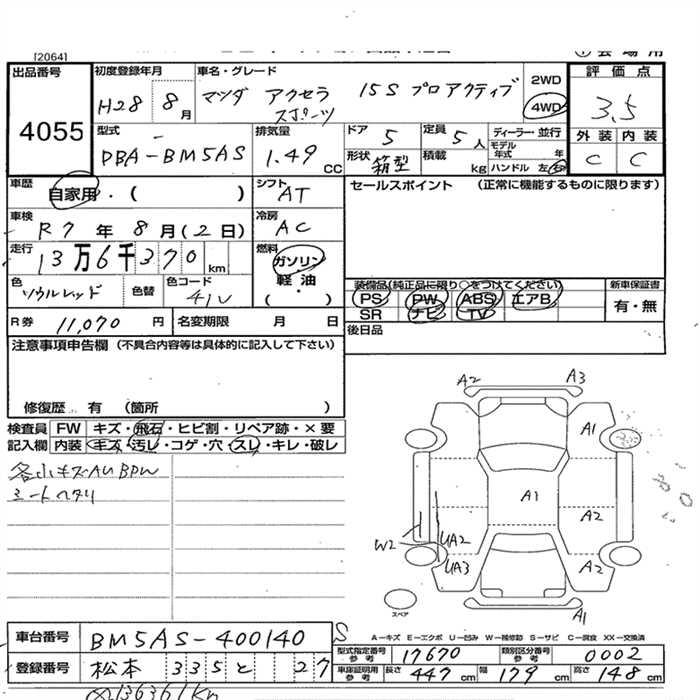 [2064]
出品番号
4055
初度登録年月
H28 8月
車名・グレード
マツダ アクセラ スポーツ 15S プロアクティブ
2WD
4WD
評価点
3.5
外装 内装
C C
型式
DBA-BM5AS
排気量
1.49 CC
ドア 5
定員 5人
ディーラー・並行
モデル年式 年
形状 箱型
積載 kg
ハンドル 左・右
車歴
自家用・( )
シフト AT
セールスポイント (正常に機能するものに限ります)
車検
R7年8月(2日)
冷房 AC
走行
13万6千370 km
燃料
ガソリン
軽油
( ・ )
色
ソウルレッド
色替
色コード
41V
装備品(純正品に限り○をつけてください)
新車保証書
PS PW ABS エアB
SR ナビ TV
有・無
R券 11,070円
名変期限 月 日
後日品
注意事項申告欄(不具合内容等は具体的に記入して下さい)
修復歴 有 (箇所 )
検査員 FW キズ・飛石・ヒビ割・リペア跡・×要
記入欄 内装 キズ・汚レ・コゲ・穴・スレ・キレ・破レ
各小キズAUBPW
シートヘタリ
A2 A3
A1
A1
A2
W2 UA2
UA3 A2
A1
スペア
A-キズ E-エクボ U-凹み W-補修跡 S-サビ C-腐食 XX-交換済
車台番号 BM5AS-400140
S
型式指定番号 参考 17670
類別区分番号 参考 0002
登録番号 松本 335 と 27
車庫証明用 参考 長さ 447cm 幅 179cm 高さ 148cm
136361km